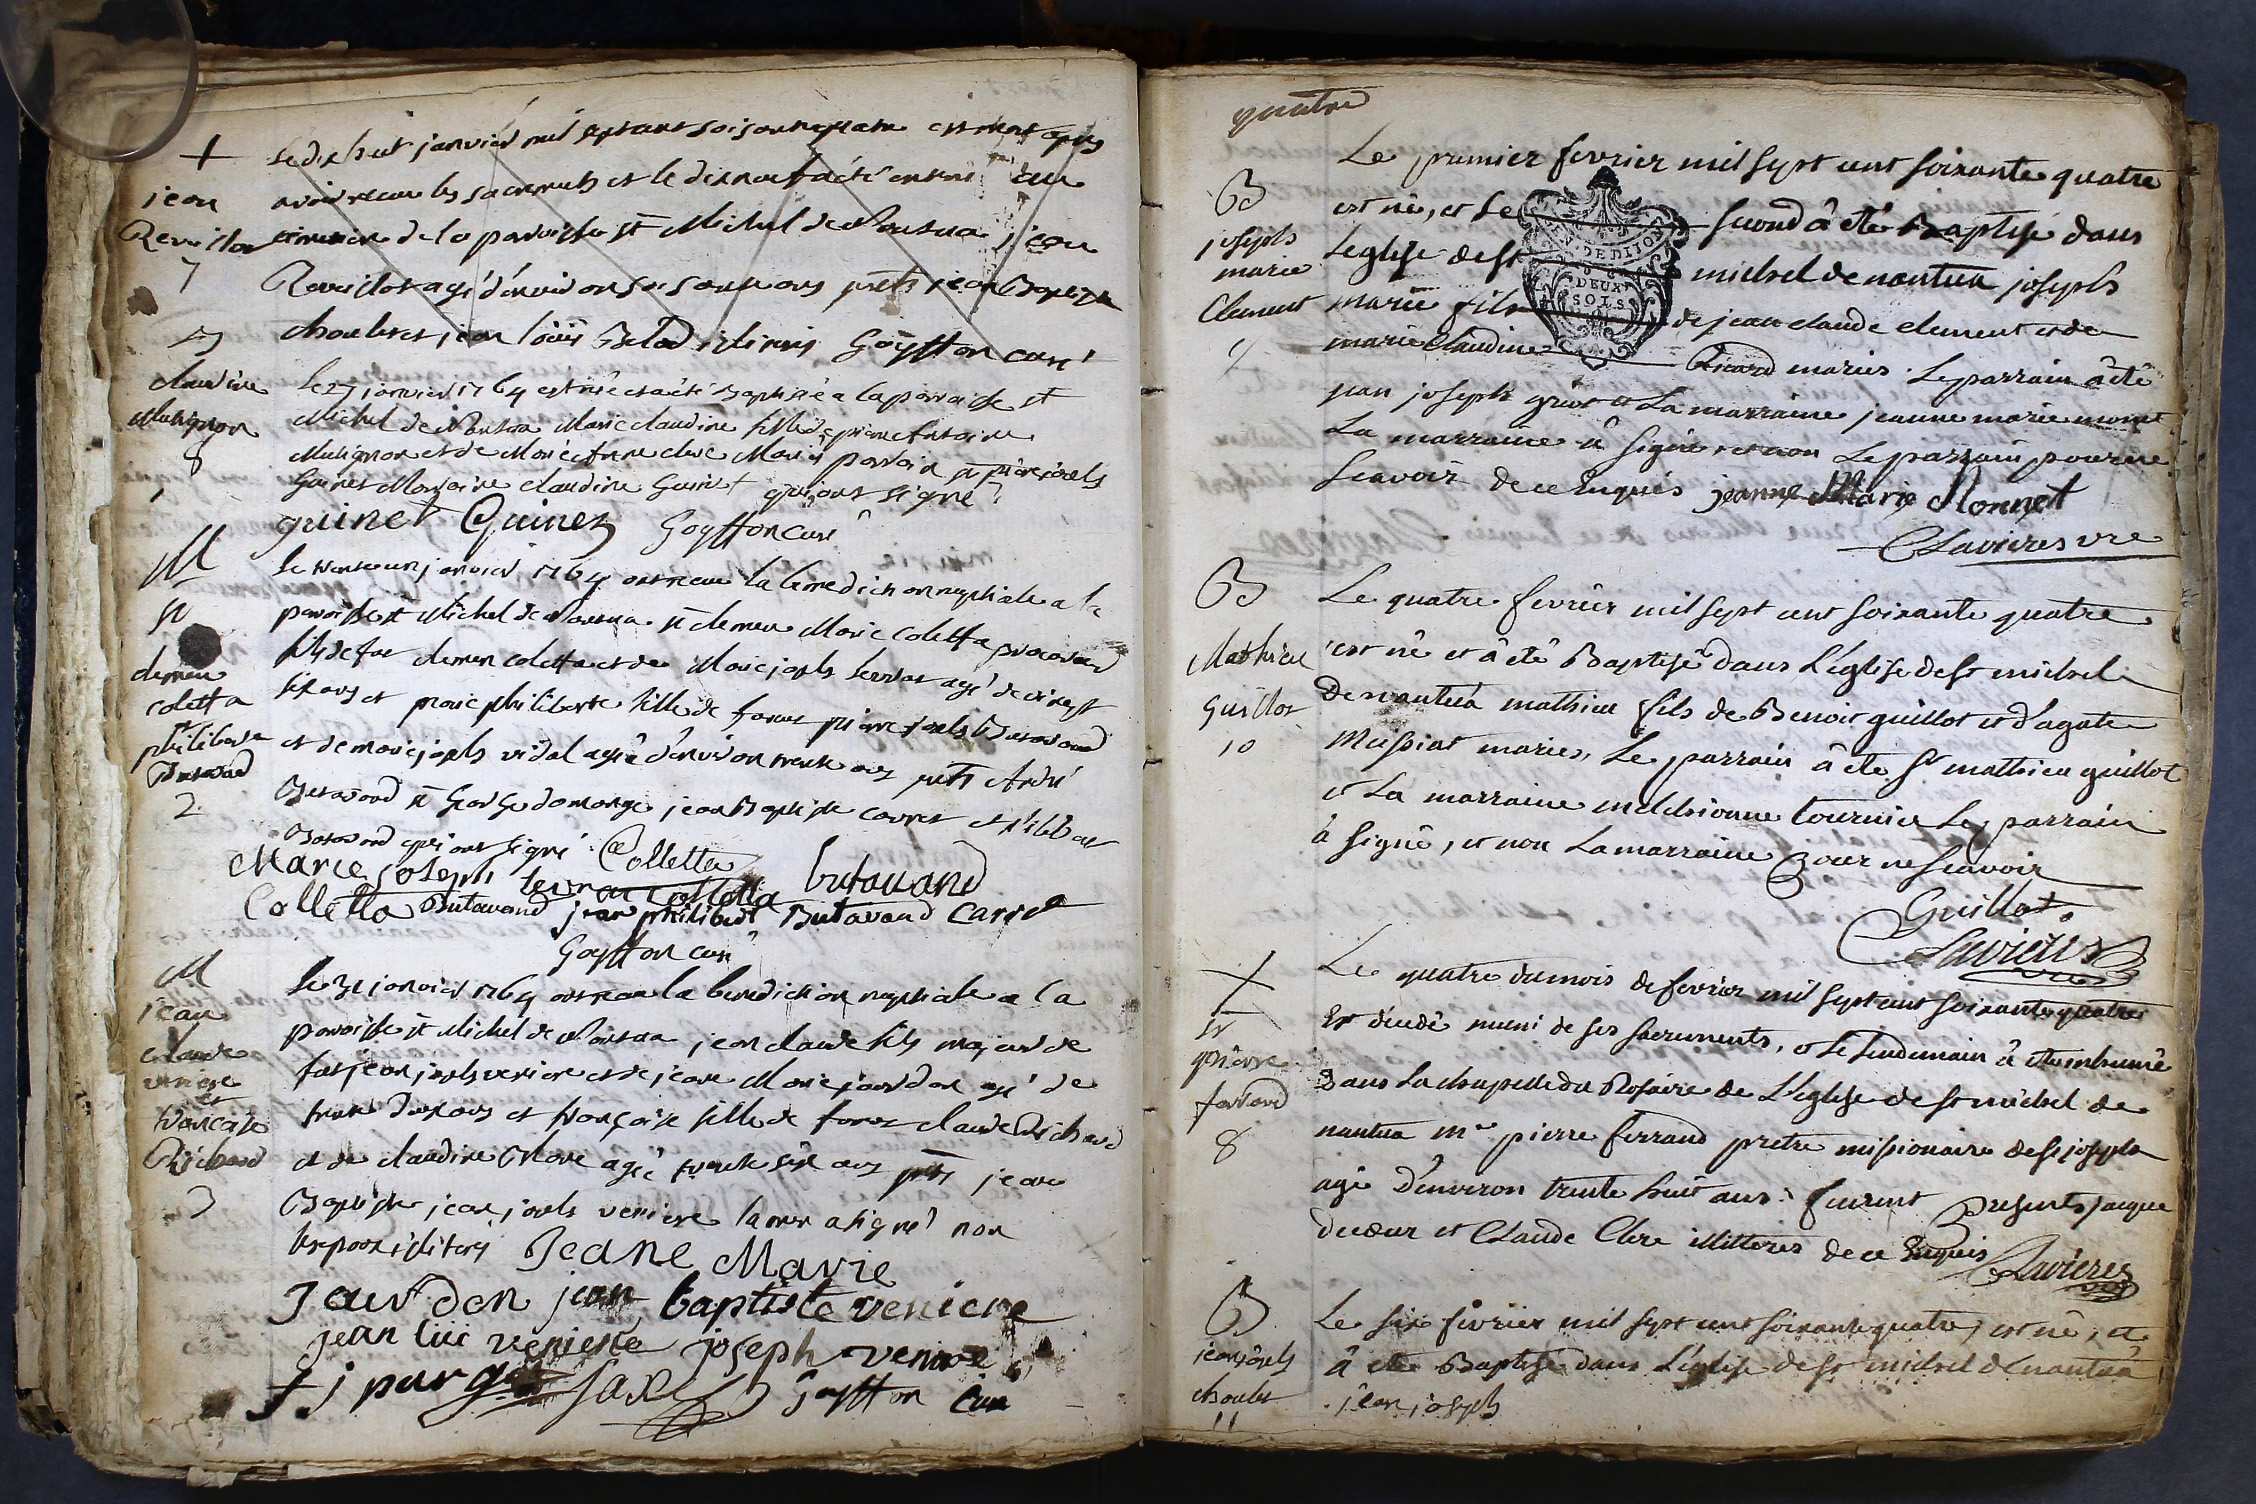 +
jean
Revillos
7
le dix huit janvier mil sept cent soisante quatre est mort apres
avoir receu les sacrements et le dix neuf a été enterré au
cimetiere de la paroisse st Michel de Nantua jean
Revillos agé d'environ soisante ans prets jean Baptiste
jean loüis iliterés Goÿffon curé
claudine
Mulignon
8
le 27 janvier 1764 est née et a été Baptisée a la paroisse st
Michel de Nantua Marie claudine fille de pierre Antoine
Mulignon et de Marie Anne clerc Mariés parrain sr pierre josels
Guinet Marraine claudine Guinet qui ont signé
guinet Guinet Goÿffon curé
M
sr
clemen
coletta
philiberte
Butavand
2
le trente un janvier 1764 ont receu la benediction nuptiale a la
paroisse st Michel de Nantua sr clemen Marie coletta
fils de feu clemen coletta et de Marie josels agé de vingt
six ans et Marie philiberte fille de feu pierre josels Butavand
et de Marie josels vidal agée d'environ trente ans prets André
Butavand sr George domange jean Baptiste carret et
Butavand qui ont signé Colletta
Marie Joseph Colletta butavand
Colletta Butavand jean philibert Butavand Carret
Goÿffon curé
M
jean
claude
veniere
et
françoise
Richard
3
le 31 janvier 1764 ont receu la benediction nuptiale a la
paroisse st Michel de Nantua jean claude fils majeur de
feu jean josels veniere et de jeane Marie jourdan agé de
trente deux ans et françoise fille de feu claude Richard
et de claudine agée trente six ans prets jean
Baptiste jean josels veniere la mere a signé non
les epoux iliterés Jeane Marie
Jourdan jean baptiste veniere
jean luc veniere joseph veniere
Goÿffon curé
quatre
B
joseph
marie
Clement
9
Le premier fevrier mil sept cent soixante quatre
est né, et le second â eté Baptisé dans
L'eglise de st michel de nantua joseph
marie fils de jean claude clement et de
marie claudine Ricard mariés. Le parrain â eté
jean joseph et La marraine jeanne marie monnet
La marraine â signé et non Le parrain pour ne
Scavoir de ce Enquis jeanne Marie Monnet
Lavieres vre
GEN. DE DIJON
DEUX
SOLS
B
Mathieu
Guillot
10
Le quatre fevrier mil sept cent soixante quatre
est né et â eté Baptisé dans L'eglise de st michel
De nantua mathieu fils de Benoit guillot et d'agate
Mussiat mariés, Le parrain â eté Sr mathieu guillot
et La marraine melchionne tournier Le parrain
â Signé, et non La marraine Pour ne Scavoir
Guillot.
Lavieres vre
+
Sr
pierre
ferrand
8
Le quatre du mois de fevrier mil sept cent soixante quatre
Est décédé muni de ses sacrements, et le lendemain â eté inhumé
Dans La chapelle du Rosaire de L'eglise de st michel de
nantua mre pierre ferrand pretre missionaire de st joseph
agé D'environ trente huit ans: furent Presents jacque
ducœur et Claude Clerc illitterés de ce Enquis
Lavieres vre
B
jean josels
choulet
11
Le six fevrier mil sept cent soixante quatre, est né, et
â eté Baptisé dans L'eglise de st michel de nantua
jean joseph